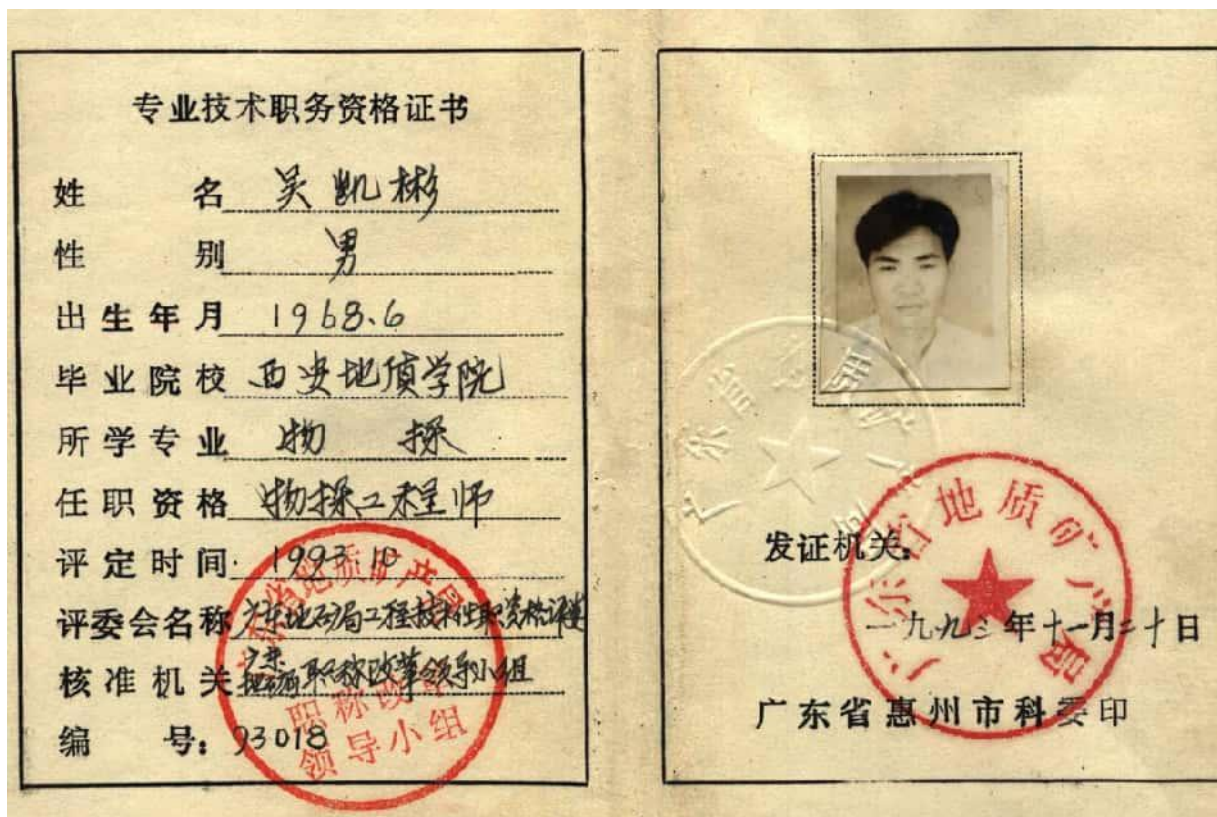 专业技术职务资格证书
姓 名 吴凯彬
性 别 男
出生年月 1968.6
毕业院校 西安地质学院
所学专业 物 探
任职资格 物探工程师
评定时间 1993.10
评委会名称 广东地矿局工程技术性职资格评委
核准机关 广东地矿局职称改革领导小组
编 号: 93018
广东省地质矿产局
职称改革
领导小组
发证机关:
广东省地质矿产局
一九九三年十一月二十日
广东省惠州市科委印